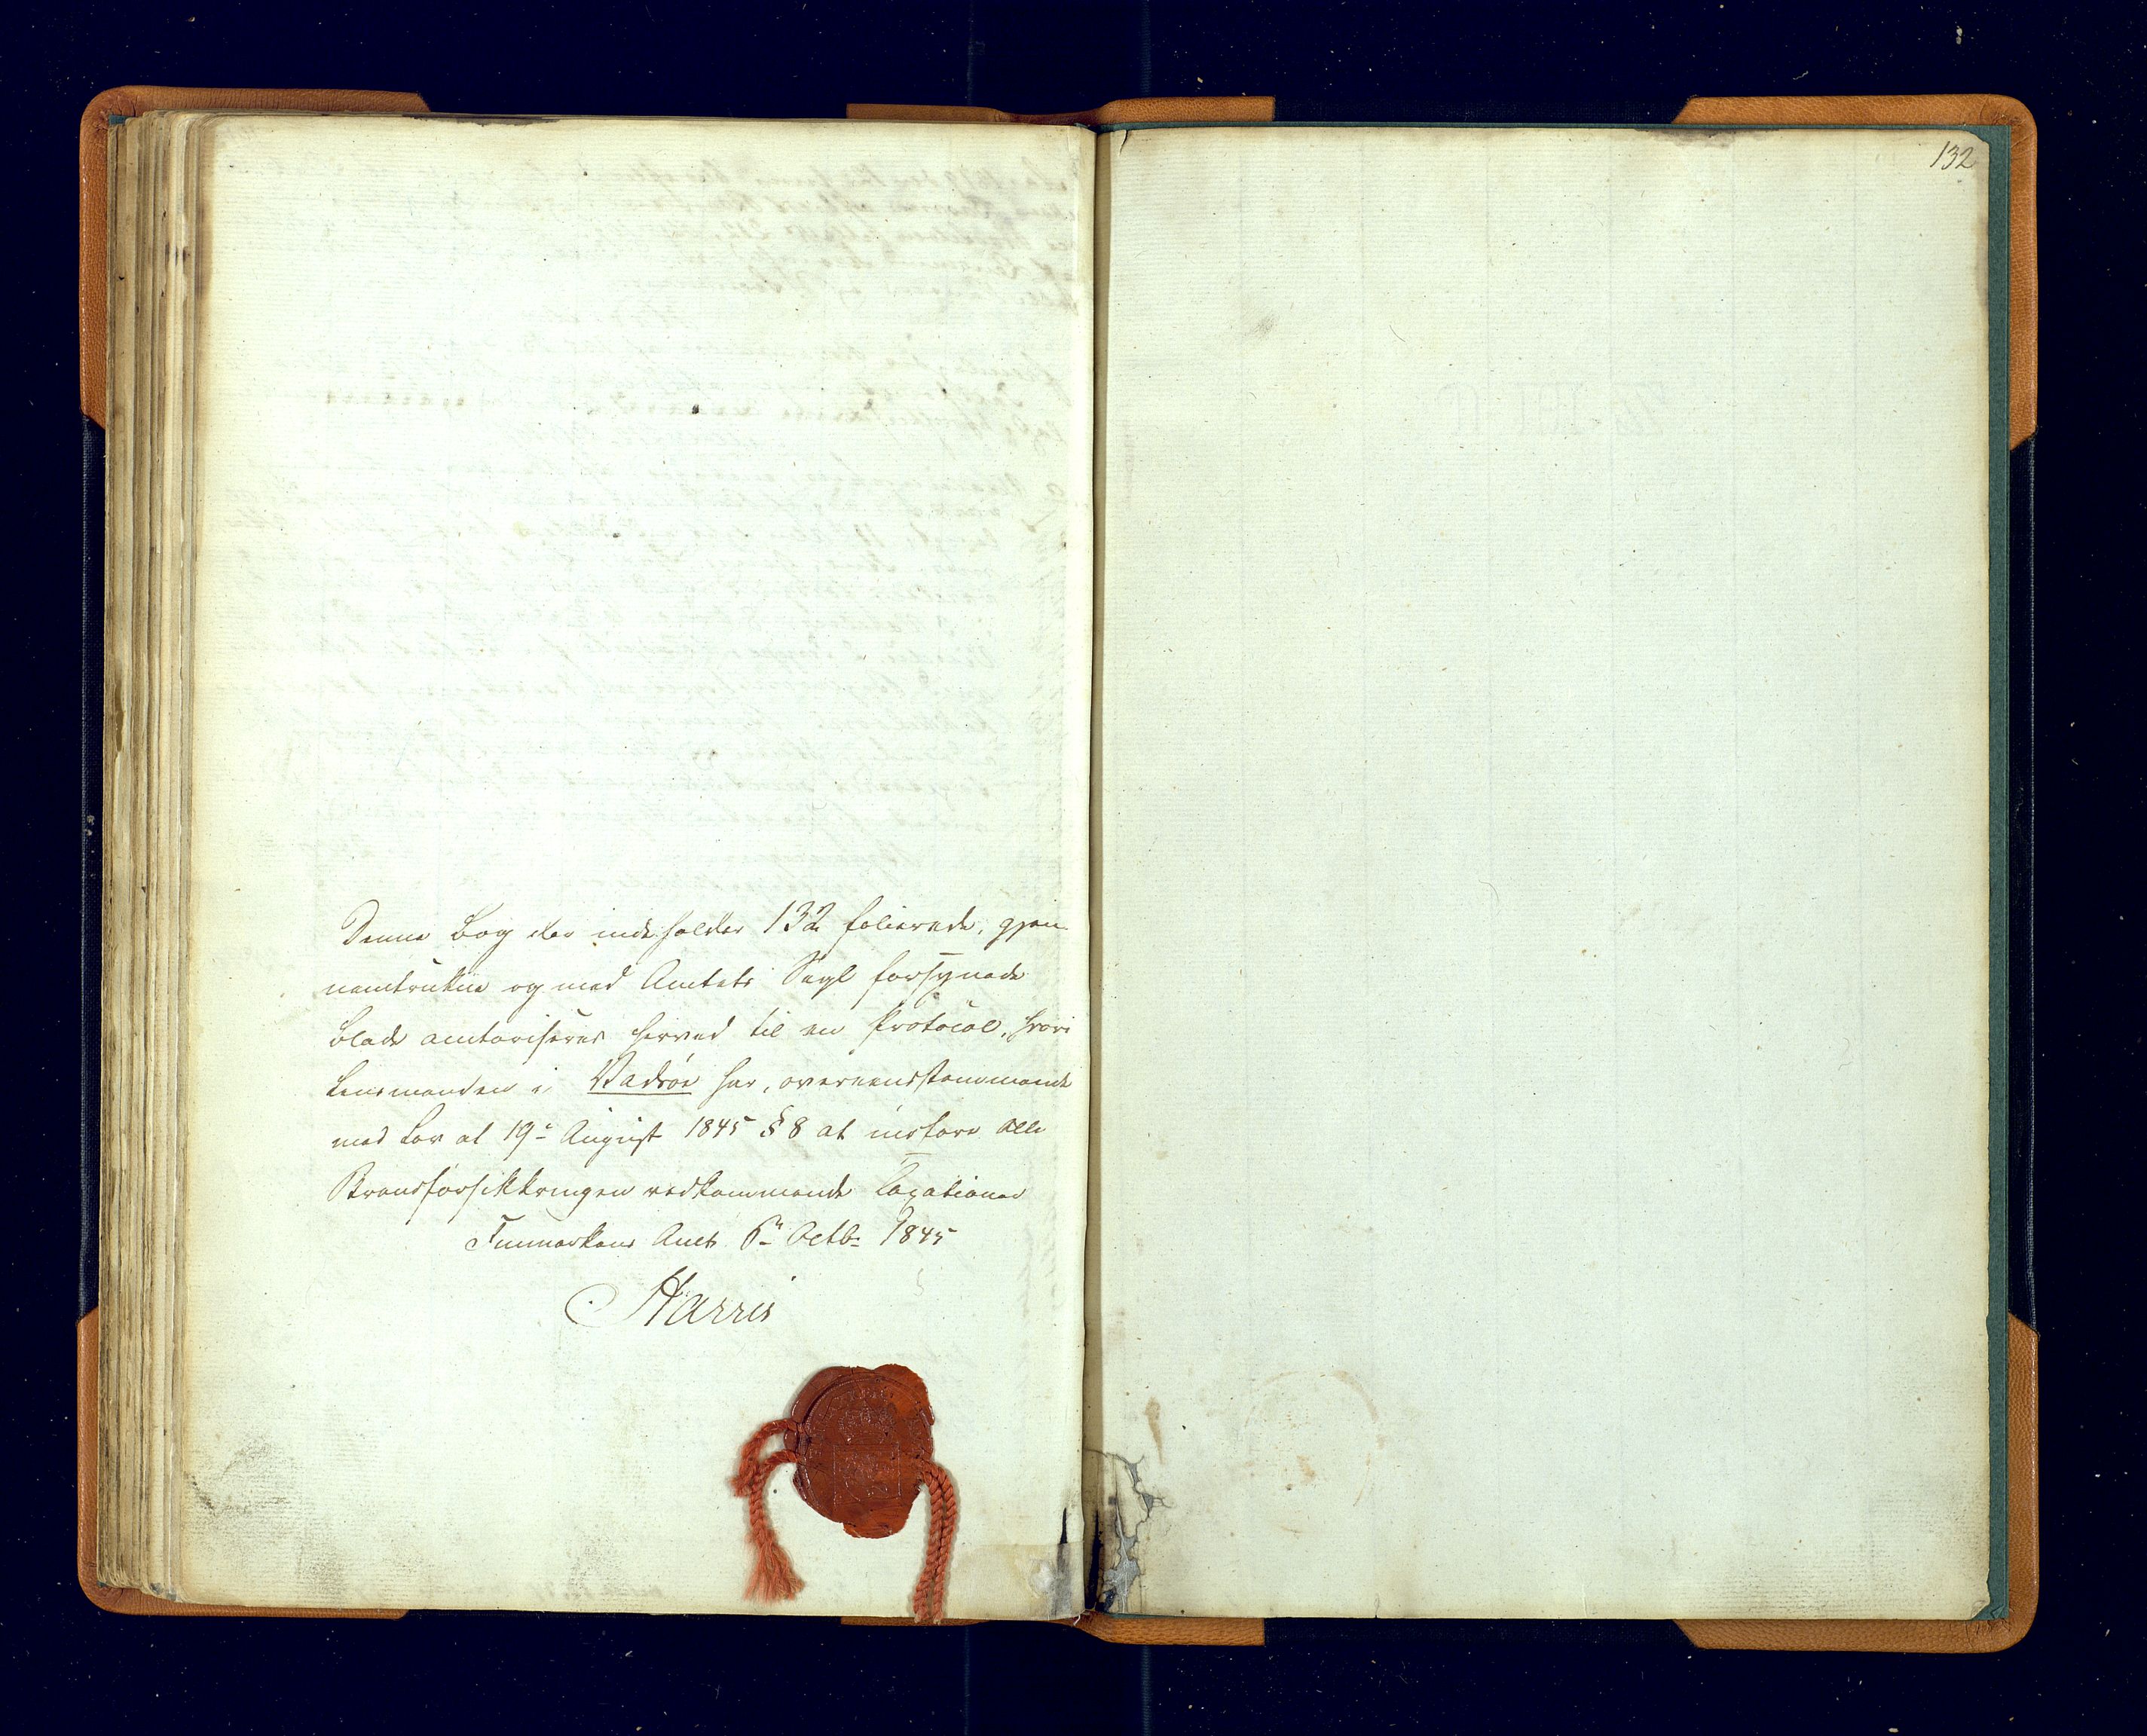 132
Denne Bog der indeholder 132 folierede, gjen-
nemtrukne og med Amtets Segl forsynede
Blade autoriseres herved til en Protocol, hvori
Lensmanden i Vadsøe har, overeensstemmende
med Lov af 19de August 1845 § 8 at indføre alle
Brandforsikkringen vedkommende Taxationer
Finmarkens Amt 6te Octbr 1845
Harris